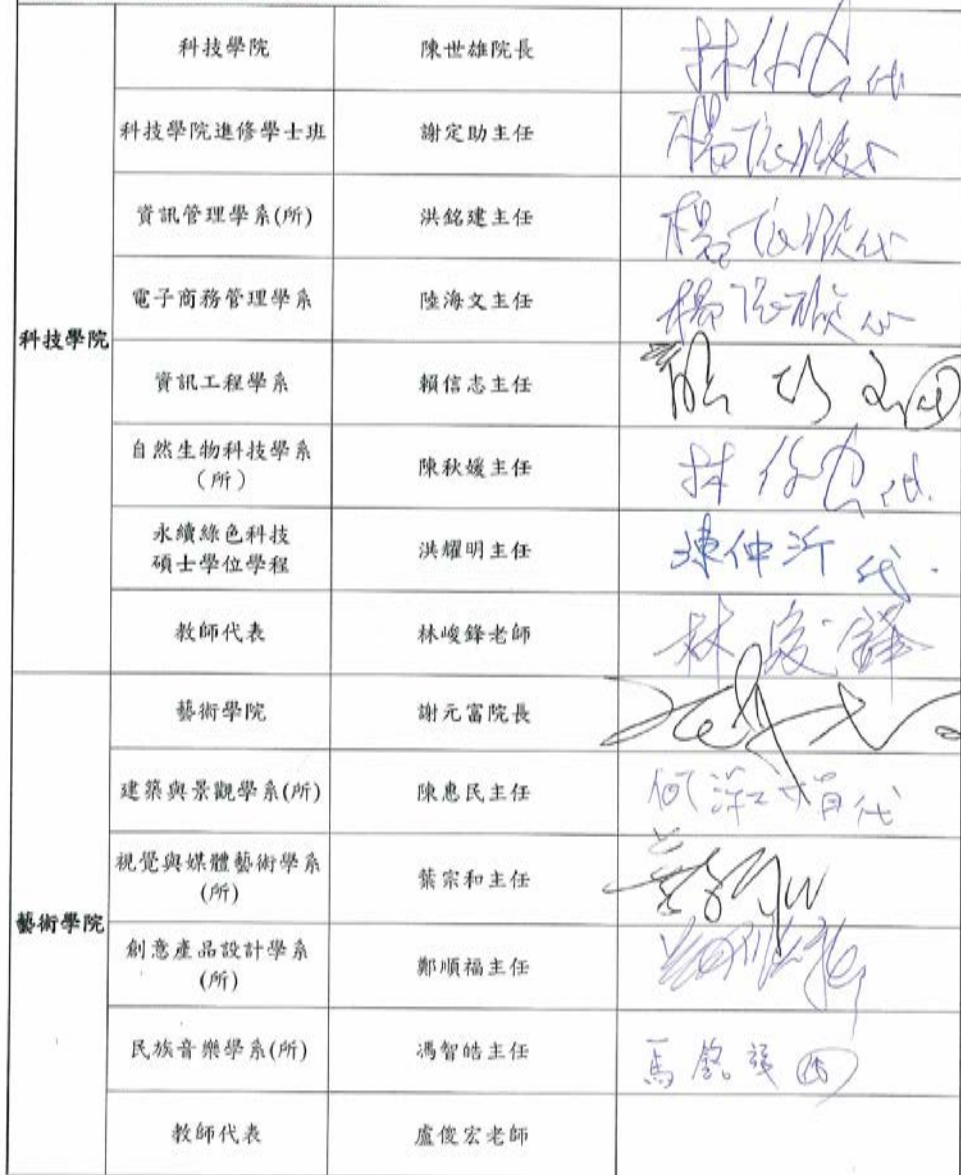 科技學院
科技學院
陳世雄院長
代
科技學院進修學士班
謝定助主任
資訊管理學系(所)
洪銘建主任
代
電子商務管理學系
陸海文主任
資訊工程學系
賴信志主任
代
自然生物科技學系
(所)
陳秋媛主任
林 代.
永續綠色科技
碩士學位學程
洪耀明主任
陳仲沂 代.
教師代表
林峻鋒老師
林峻鋒
藝術學院
藝術學院
謝元富院長
建築與景觀學系(所)
陳惠民主任
何 代
視覺與媒體藝術學系
(所)
葉宗和主任
創意產品設計學系
(所)
鄭順福主任
民族音樂學系(所)
馮智皓主任
馬 代
教師代表
盧俊宏老師